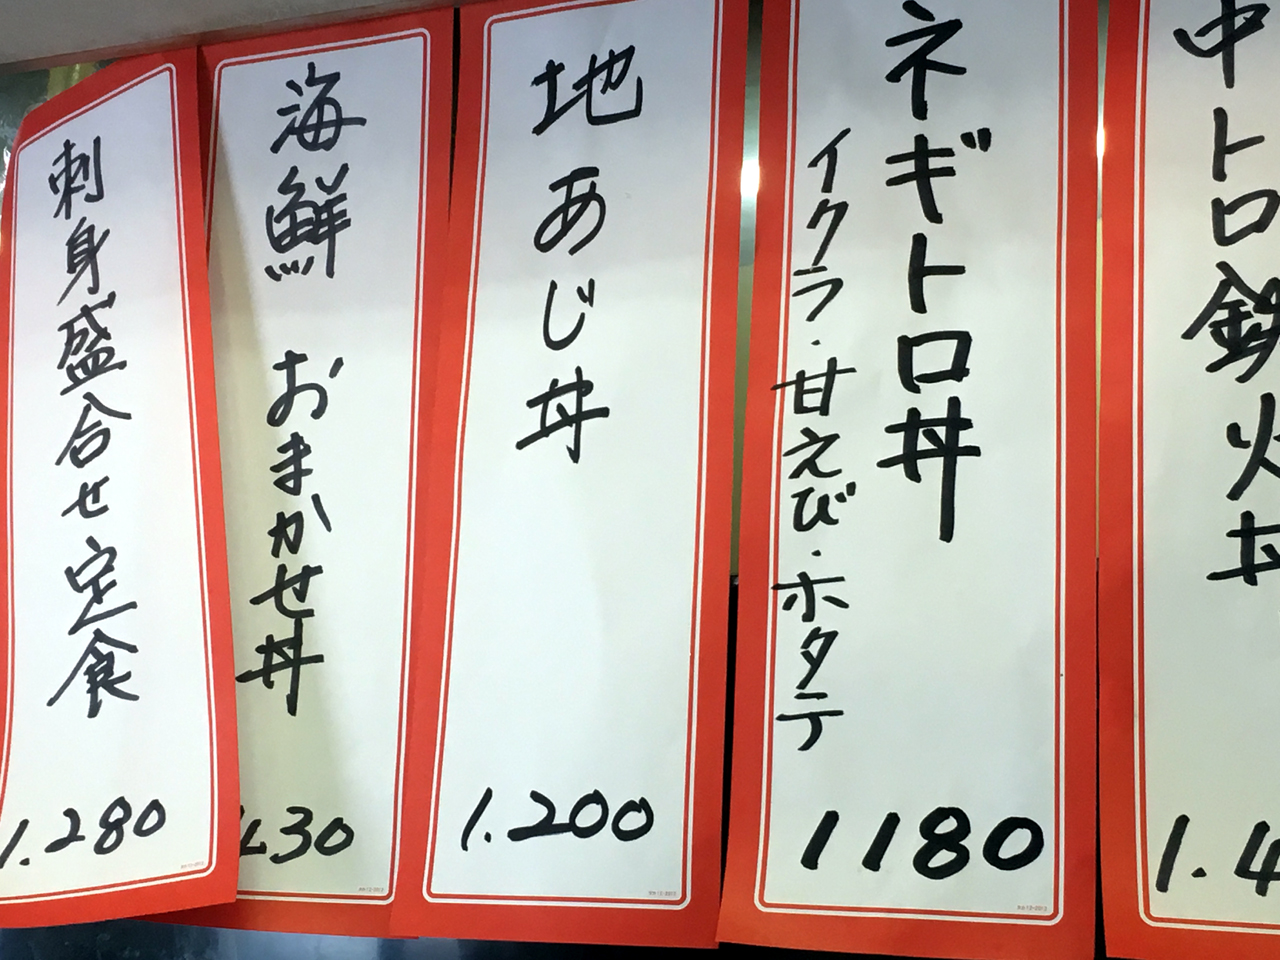 中トロ鉄火丼
1.4
ネギトロ丼
イクラ・甘えび・ホタテ
1180
地あじ丼
1.200
海鮮 おまかせ丼
430
刺身盛合せ定食
1.280